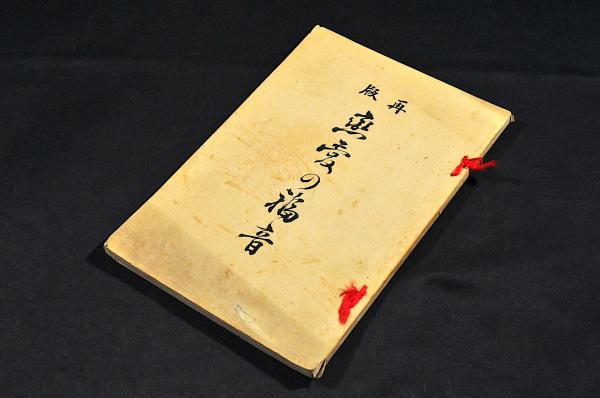 再版
戀愛の福音